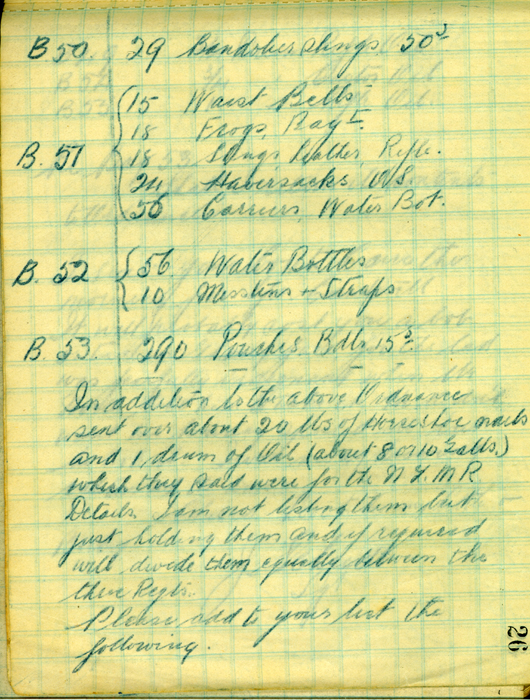 B 50. 29 Bandolier slings 50s
15 Waist Belts
18 Frogs, Bayt.
B. 51 18 Slings Leather Rifle.
24 Haversacks O.S.
56 Carriers, Water Bot.
B. 52 56 Water Bottles
10 Messtins & Straps
B. 53. 290 Pouches Bdlr 15s
In addition to the above Ordnance
sent over about 20 lbs of Horseshoe nails
and 1, drum of Oil (about 8 or 10 Galls.)
which they said were for the N.Z.M.R.
Details. I am not listing them but
just holding them and if required
will divide them equally between the
three Regts.
Please add to your list the
following.
26